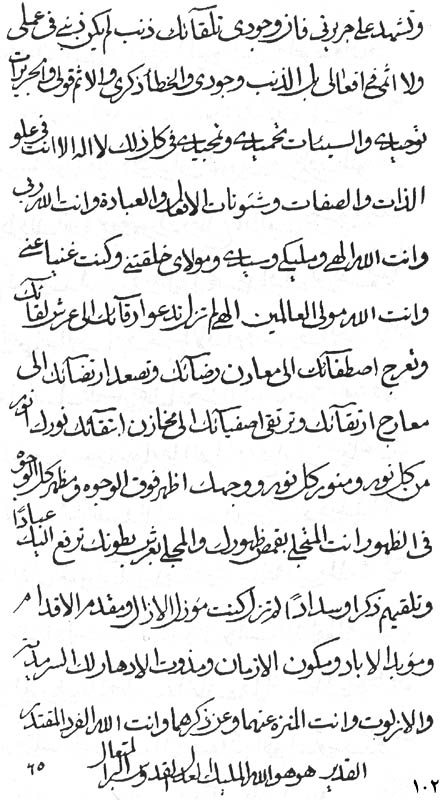 وتشهد على جريرتي فان وجودي تلقائك ذنب لم يكن ذنبي في عملي
ولا اثمي في افعالي بل الذنب وجودي والخطأ ذكري والاثم قولي والجريرات
توحيدي والسيئات تحميدي وتمجيدي في كل ذلك لا اله الا انت في علو
الذات والصفات وشئونات الافعال والعبادة وانت الله ربي
وانت الله الهي ومليكي وسيدي ومولاي خلقتني وكنت غنيا عني
وانت الله مولى العالمين الهي لم تزل تدعو ارقائك الى عرش لقائك
وتعرج اصطفائك الى معادن رضائك وتصعد ارتضائك الى
معارج ارتقائك وترتقي اصفيائك الى مخازن انتقائك نورك انور
من كل نور ومنور كل نور ووجهك اظهر فوق الوجوه ومظهر كل الوجوه
في الظهور انت المتجلي بقمص ظهورك والمجلي بعرش بطونك ترفع اليك عبادا
وتلقيهم ذكرا وسدادا لم تزل كنت مؤزل الازال ومقدم الاقدام
ومؤبد الاباد ومكون الازمان ومذوت الادهار لك السرمدية
والازلوت وانت المنزه عنهما وعن ذكرهما وانت الله الفرد المقتدر
القدير هو هو الله المليك العدل القدوس المتعال
٦٥
١٠٢